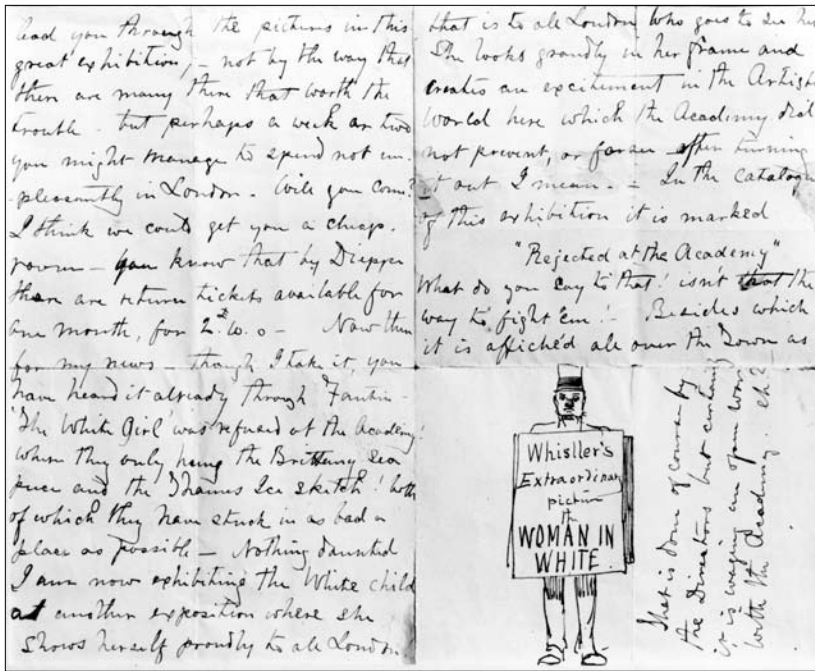 lead you through the pictures in this
great exhibition, - not by the way that
there are many there that worth the
trouble - but perhaps a week or two
you might manage to spend not un-
-pleasantly in London. Will you come?
I think we could get you a cheap
room - You know that by Dieppe
there are return tickets available for
one month, for
Now then
for my news - though I take it, you
have heard it already through Fantin -
'The White Girl' was refused at the Academy!
where they only hung the Brittany Sea
piece and the Thames Ice Sketch! both
of which they have stuck in as bad a
place as possible - Nothing daunted
I am now exhibiting the White child
at another exposition where she
shows herself proudly to all London.
that is to all London who goes to see her
She looks grandly in her frame and
creates an excitement in the Artistic
World here which the Academy did
not prevent, or foresee after turning
it out I mean. - In the catalogue
of this exhibition it is marked
"Rejected at the Academy"
What do you say to that! isn't that the
way to fight 'em! - Besides which
it is affiché'd all over the Town as
Whistler's
Extraordinary
picture
the
WOMAN IN
WHITE.
That is done of course by
the Directors but certainly
it is waging an open war
with the Academy. eh?